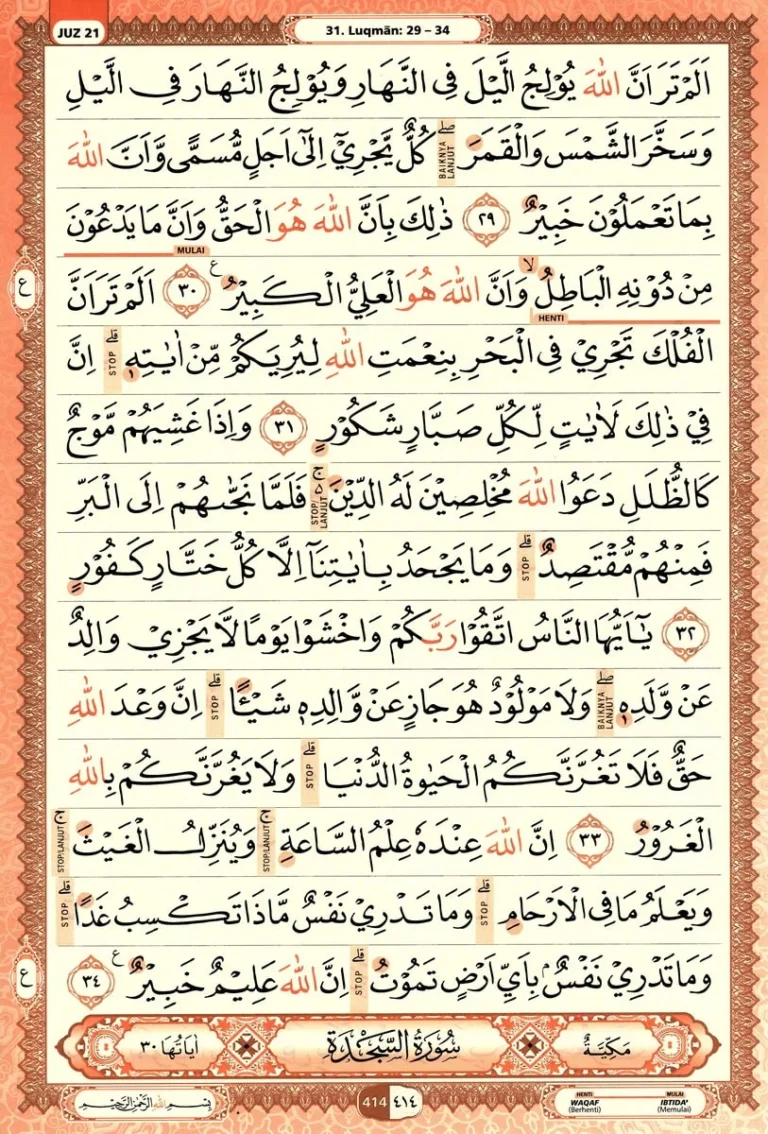 JUZ 21
31. Luqmān: 29 – 34
اَلَمْ تَرَ اَنَّ اللّٰهَ يُوْلِجُ الَّيْلَ فِى النَّهَارِ وَيُوْلِجُ النَّهَارَ فِى الَّيْلِ
وَسَخَّرَ الشَّمْسَ وَالْقَمَرَۖ BAIKNYA LANJUT كُلٌّ يَّجْرِيْٓ اِلٰٓى اَجَلٍ مُّسَمًّى وَّاَنَّ اللّٰهَ
بِمَا تَعْمَلُوْنَ خَبِيْرٌ ٢٩ ذٰلِكَ بِاَنَّ اللّٰهَ هُوَ الْحَقُّ وَاَنَّ مَا يَدْعُوْنَ
MULAI
مِنْ دُوْنِهِ الْبَاطِلُۙ وَاَنَّ اللّٰهَ هُوَ الْعَلِيُّ الْكَبِيْرُ ࣖ ٣٠ اَلَمْ تَرَ اَنَّ
ع
HENTI
الْفُلْكَ تَجْرِيْ فِى الْبَحْرِ بِنِعْمَتِ اللّٰهِ لِيُرِيَكُمْ مِّنْ اٰيٰتِهٖۗ STOP اِنَّ
فِيْ ذٰلِكَ لَاٰيٰتٍ لِّكُلِّ صَبَّارٍ شَكُوْرٍ ٣١ وَاِذَا غَشِيَهُمْ مَّوْجٌ
كَالظُّلَلِ دَعَوُا اللّٰهَ مُخْلِصِيْنَ لَهُ الدِّيْنَ ەۚ STOP/ LANJUT فَلَمَّا نَجّٰىهُمْ اِلَى الْبَرِّ
فَمِنْهُمْ مُّقْتَصِدٌۗ STOP وَمَا يَجْحَدُ بِاٰيٰتِنَآ اِلَّا كُلُّ خَتَّارٍ كَفُوْرٍ
٣٢ يٰٓاَيُّهَا النَّاسُ اتَّقُوْا رَبَّكُمْ وَاخْشَوْا يَوْمًا لَّا يَجْزِيْ وَالِدٌ
عَنْ وَّلَدِهٖۖ BAIKNYA LANJUT وَلَا مَوْلُوْدٌ هُوَ جَازٍ عَنْ وَّالِدِهٖ شَيْـًٔاۗ STOP اِنَّ وَعْدَ اللّٰهِ
حَقٌّ فَلَا تَغُرَّنَّكُمُ الْحَيٰوةُ الدُّنْيَاۗ STOP وَلَا يَغُرَّنَّكُمْ بِاللّٰهِ
الْغَرُوْرُ ٣٣ اِنَّ اللّٰهَ عِنْدَهٗ عِلْمُ السَّاعَةِۚ STOP/LANJUT وَيُنَزِّلُ الْغَيْثَۚ STOP/LANJUT
وَيَعْلَمُ مَا فِى الْاَرْحَامِۗ STOP وَمَا تَدْرِيْ نَفْسٌ مَّاذَا تَكْسِبُ غَدًاۗ STOP
وَمَا تَدْرِيْ نَفْسٌۢ بِاَيِّ اَرْضٍ تَمُوْتُۗ STOP اِنَّ اللّٰهَ عَلِيْمٌ خَبِيْرٌ ࣖ ٣٤
ع
مَكِّيَّةٌ سُوْرَةُ السَّجْدَةِ اٰيَاتُهَا ٣٠
بِسْمِ اللّٰهِ الرَّحْمٰنِ الرَّحِيْمِ
414 ٤١٤
HENTI MULAI
WAQAF IBTIDA'
(Berhenti) (Memulai)